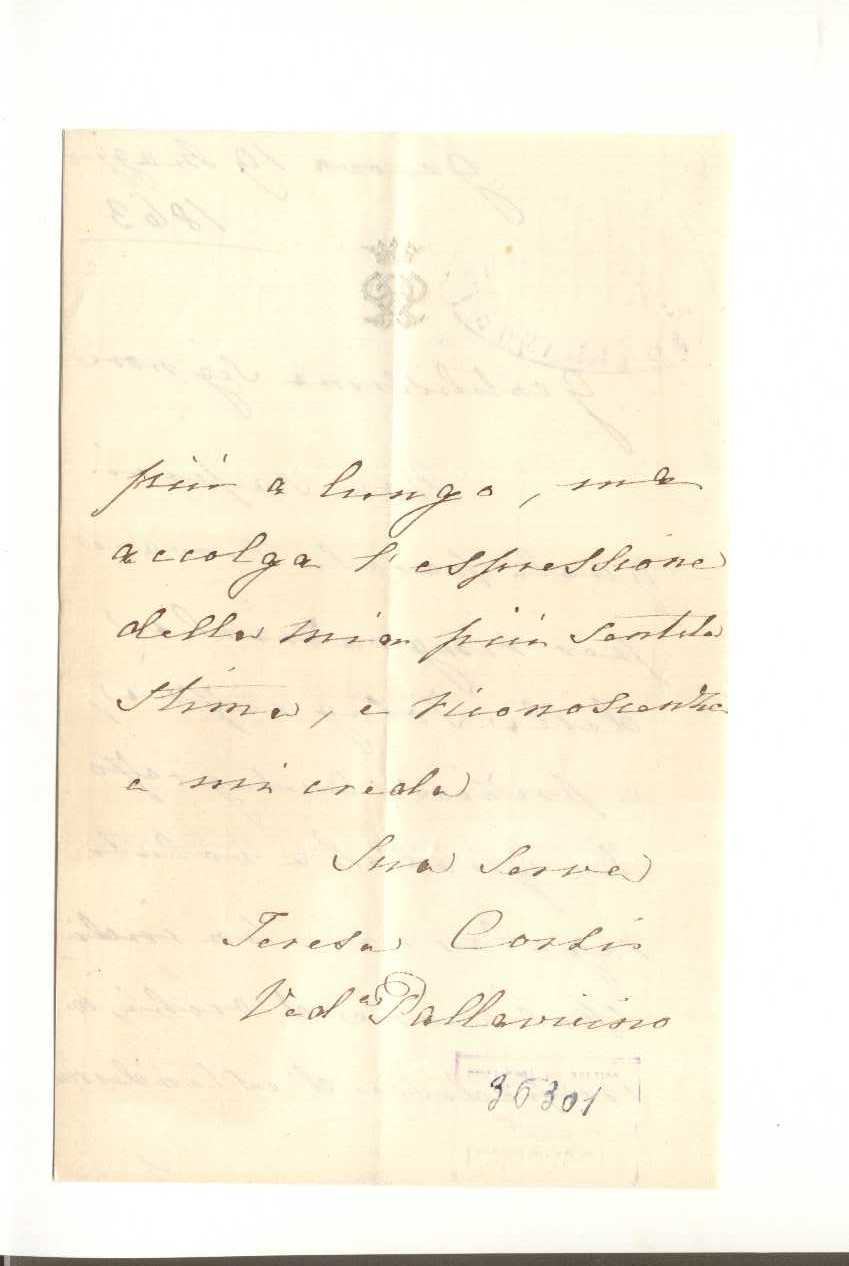 più a lungo, ma
accolga l'espressione
della mia più sentita
stima, e riconoscenza
e mi creda
Sua Serva
Teresa Corsi
Ved.ª Pallavicino
36301